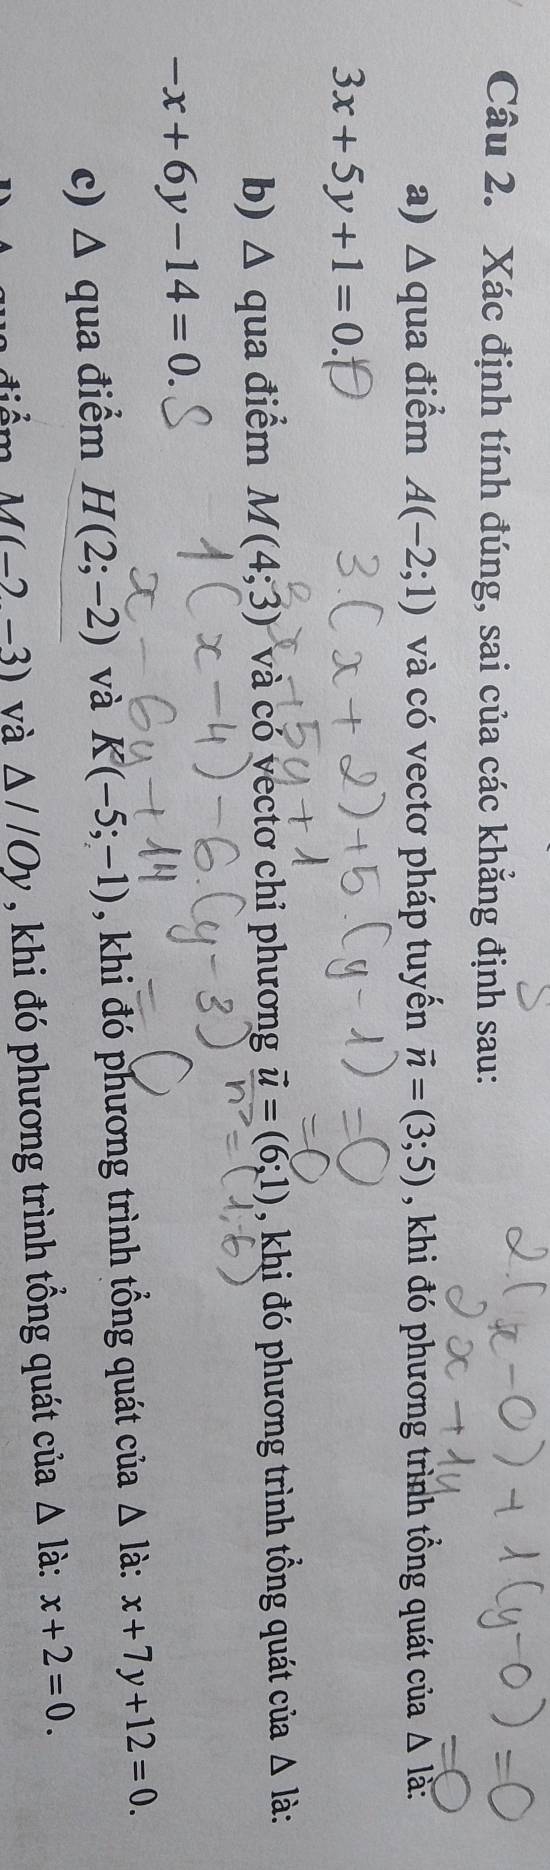 Câu 2. Xác định tính đúng, sai của các khẳng định sau:
2.(x-0)+1(y-0)=0
2x+1y =0
a) Δ qua điểm A(-2;1) và có vectơ pháp tuyến n⃗ = (3;5), khi đó phương trình tổng quát của Δ là:
3x+5y+1=0. Đ
3.(x+2)+5.(y-1)=0
3x+5y+1 =0
b) Δ qua điểm M(4;3) và có vectơ chỉ phương u⃗ = (6;1), khi đó phương trình tổng quát của Δ là:
-x+6y-14=0. S
1(x-4)-6.(y-3) n⃗=(1;-6)
x-6y+14 =0
c) Δ qua điểm H(2;-2) và K(-5;-1), khi đó phương trình tổng quát của Δ là: x+7y+12=0.
qua điểm M(-2;-3) và Δ//Oy, khi đó phương trình tổng quát của Δ là: x+2=0.